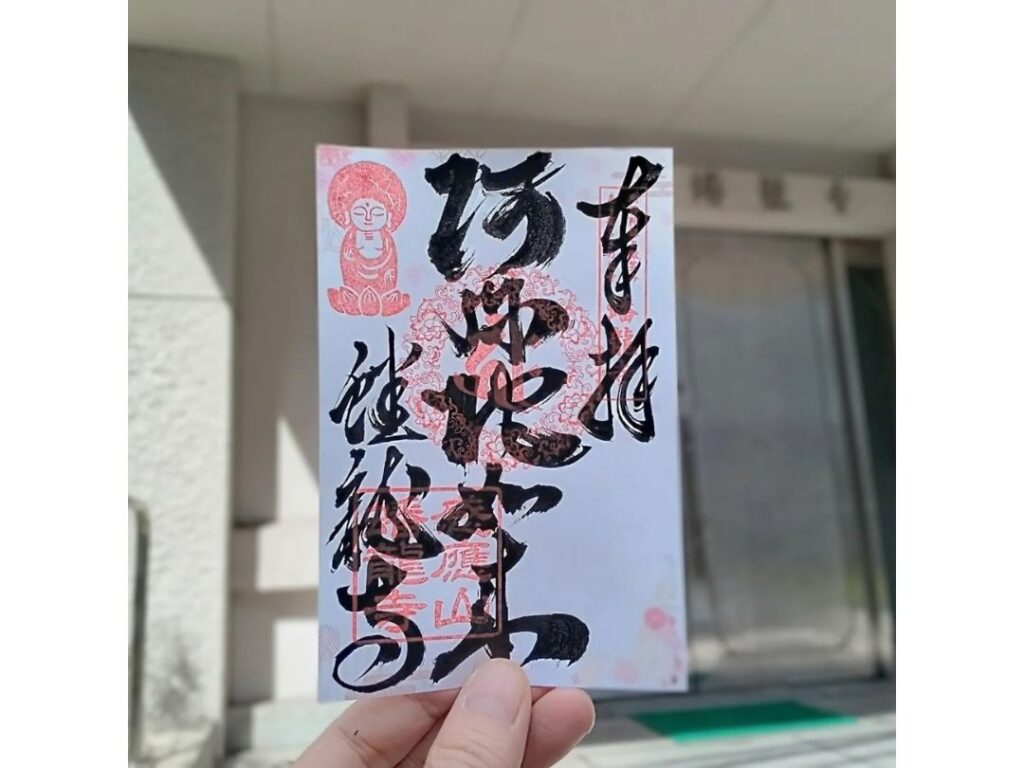 奉拝
阿弥陀如来
蟠龍寺
感應山
蟠龍寺